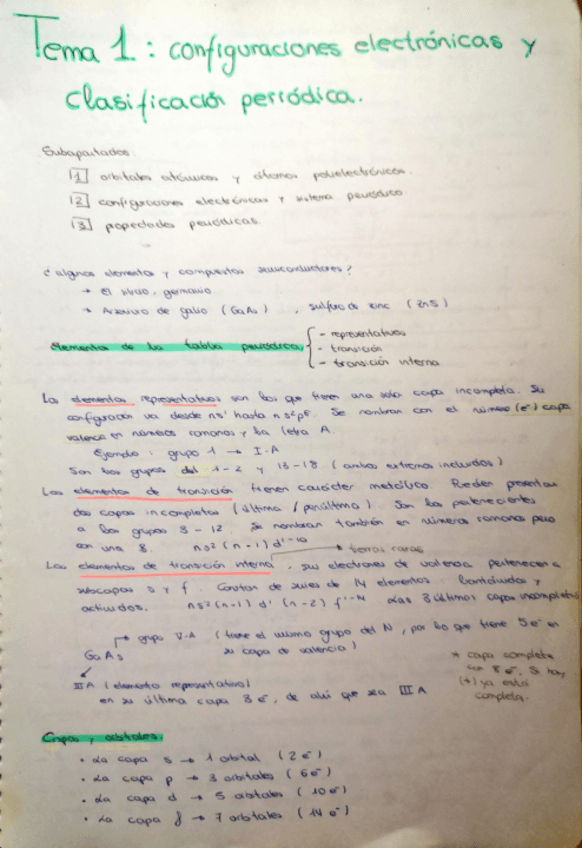 Tema 1: configuraciones electrónicas y
clasificación periódica.
Subapartados:
1 orbitales atómicos y átomos polielectrónicos.
2 configuraciones electrónicas y sistema periódico
3 propiedades periódicas.
¿algunos elementos y compuestos semiconductores?
→ El silicio, germanio
→ Arseniuro de galio (GaAs), sulfuro de zinc (ZnS)
Elementos de la tabla periódica.
- representativos
- transición
- transición interna
Los elementos representativos son los que tienen una sola capa incompleta. Su
configuración va desde ns¹ hasta ns²p⁶. Se nombran con el número (e⁻) capa
valencia en números romanos y la letra A.
Ejemplo: grupo 1 → I.A
Son los grupos del 1-2 y 13-18 (ambos extremos incluidos)
Los elementos de transición tienen carácter metálico. Pueden presentar
dos capas incompletas (última / penúltima). Son los pertenecientes
a los grupos 3 - 12. Se nombran también en números romanos pero
con una B. ns² (n-1) d¹⁻¹⁰
→ tierras raras
Los elementos de transición interna, sus electrones de valencia pertenecen a
subcapas s y f. Constan de series de 14 elementos lantánidos y
actínidos. ns² (n-1) d¹ (n-2) f¹⁻¹⁴ Las 3 últimas capas incompletas
→ grupo V.A (tiene el mismo grupo del N, por lo que tiene 5e⁻ en
su capa de valencia)
GaAs
IIIA (elemento representativo)
en su última capa 3 e⁻, de ahí que sea IIIA
* capa completa
con 8 e⁻. Si hay
(+) ya está
completa.
Capas y orbitales.
• La capa s → 1 orbital (2 e⁻)
• La capa p → 3 orbitales (6 e⁻)
• La capa d → 5 orbitales (10 e⁻)
• La capa f → 7 orbitales (14 e⁻)